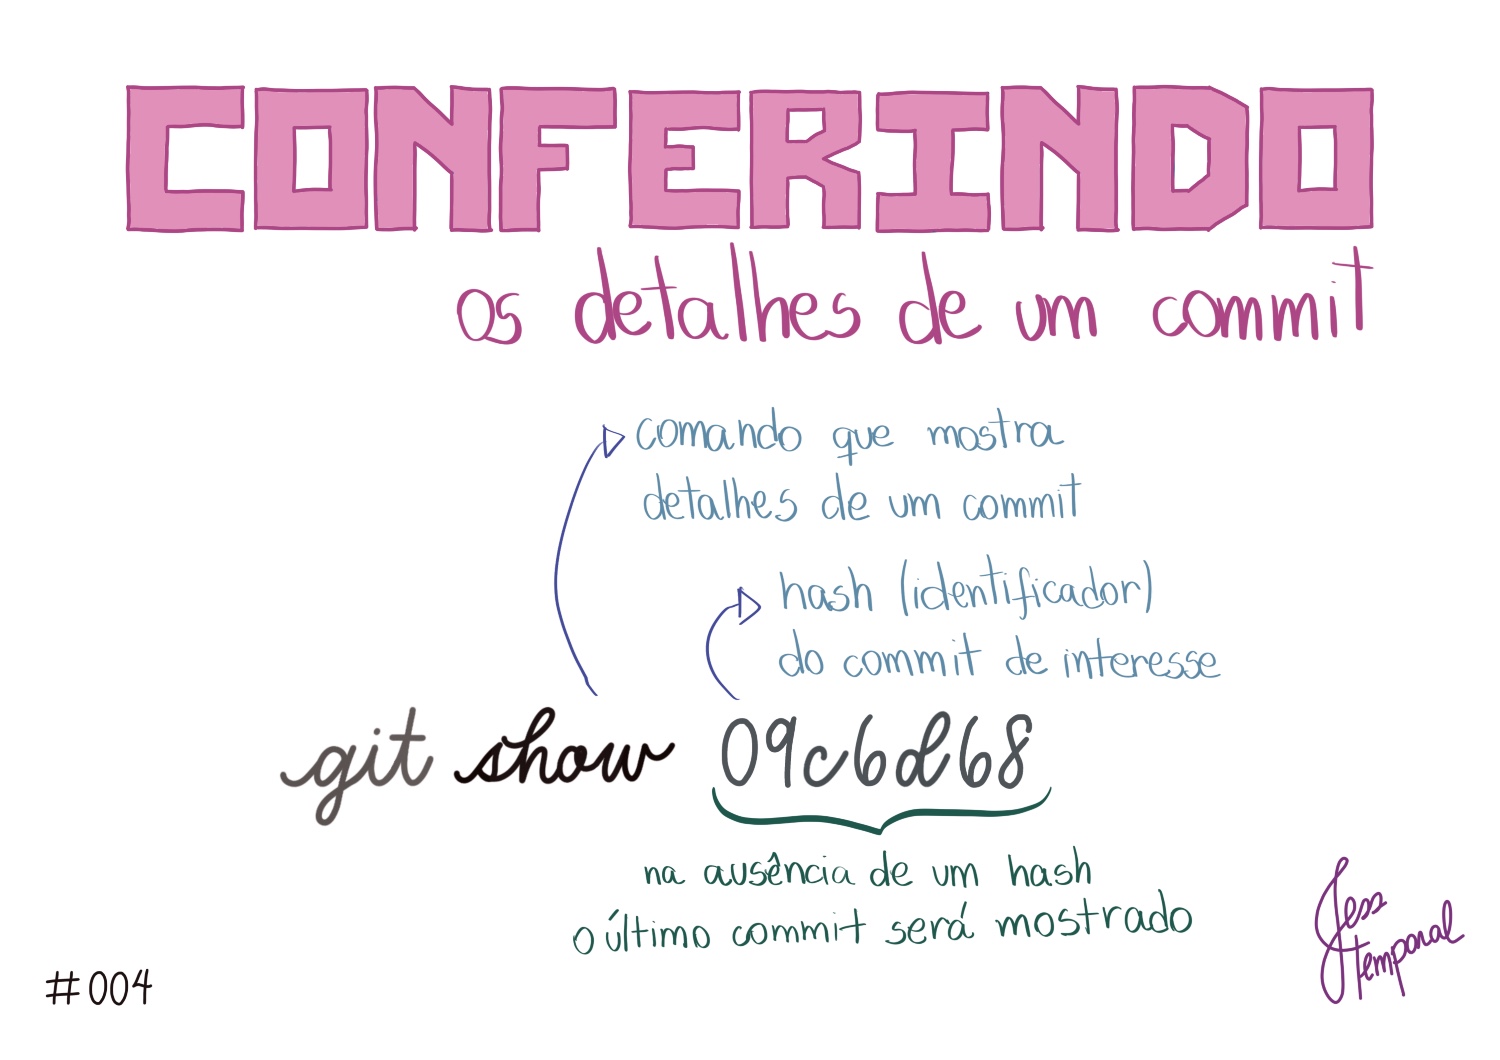 CONFERINDO
os detalhes de um commit
comando que mostra
detalhes de um commit
hash (identificador)
do commit de interesse
git show 09c6d68
na ausência de um hash
o último commit será mostrado
Jess
temporal
#004